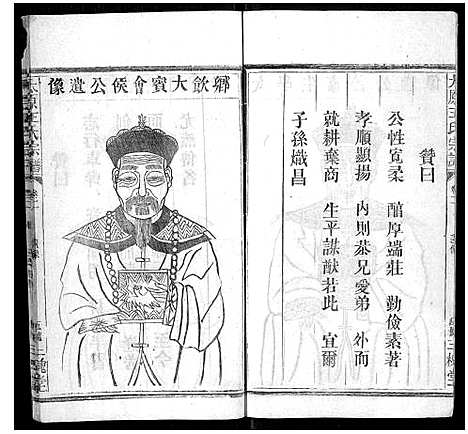 太原王氏宗譜
贊曰
公性寬柔 醕厚端莊 勤儉素著
孝順顯揚 內則恭兄愛弟 外而
就耕棄商 生平謀猷若此 宜爾
子孫熾昌
三槐堂
鄉飲大賓會候公遺像
太原王氏宗譜
三槐堂